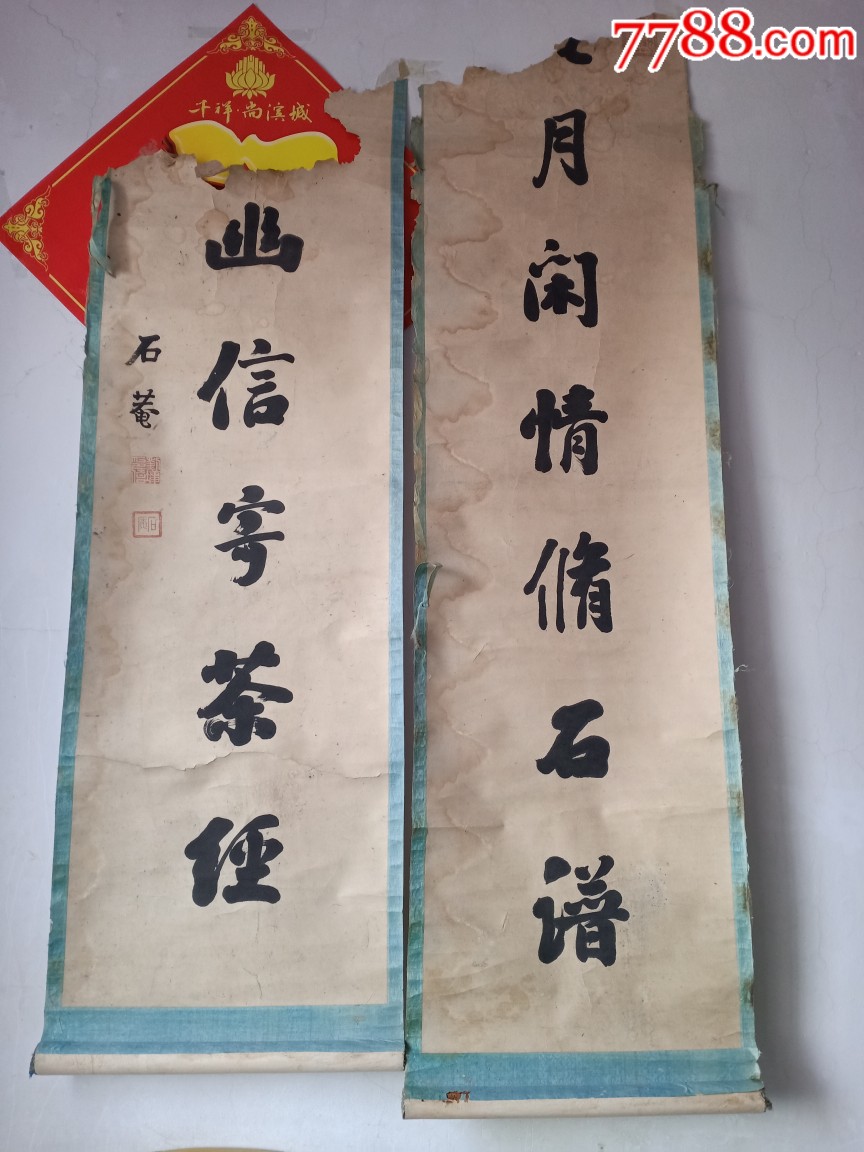 7788.com
千祥·尚滨城
月闲情脩石谱
幽信寄茶经
石菴